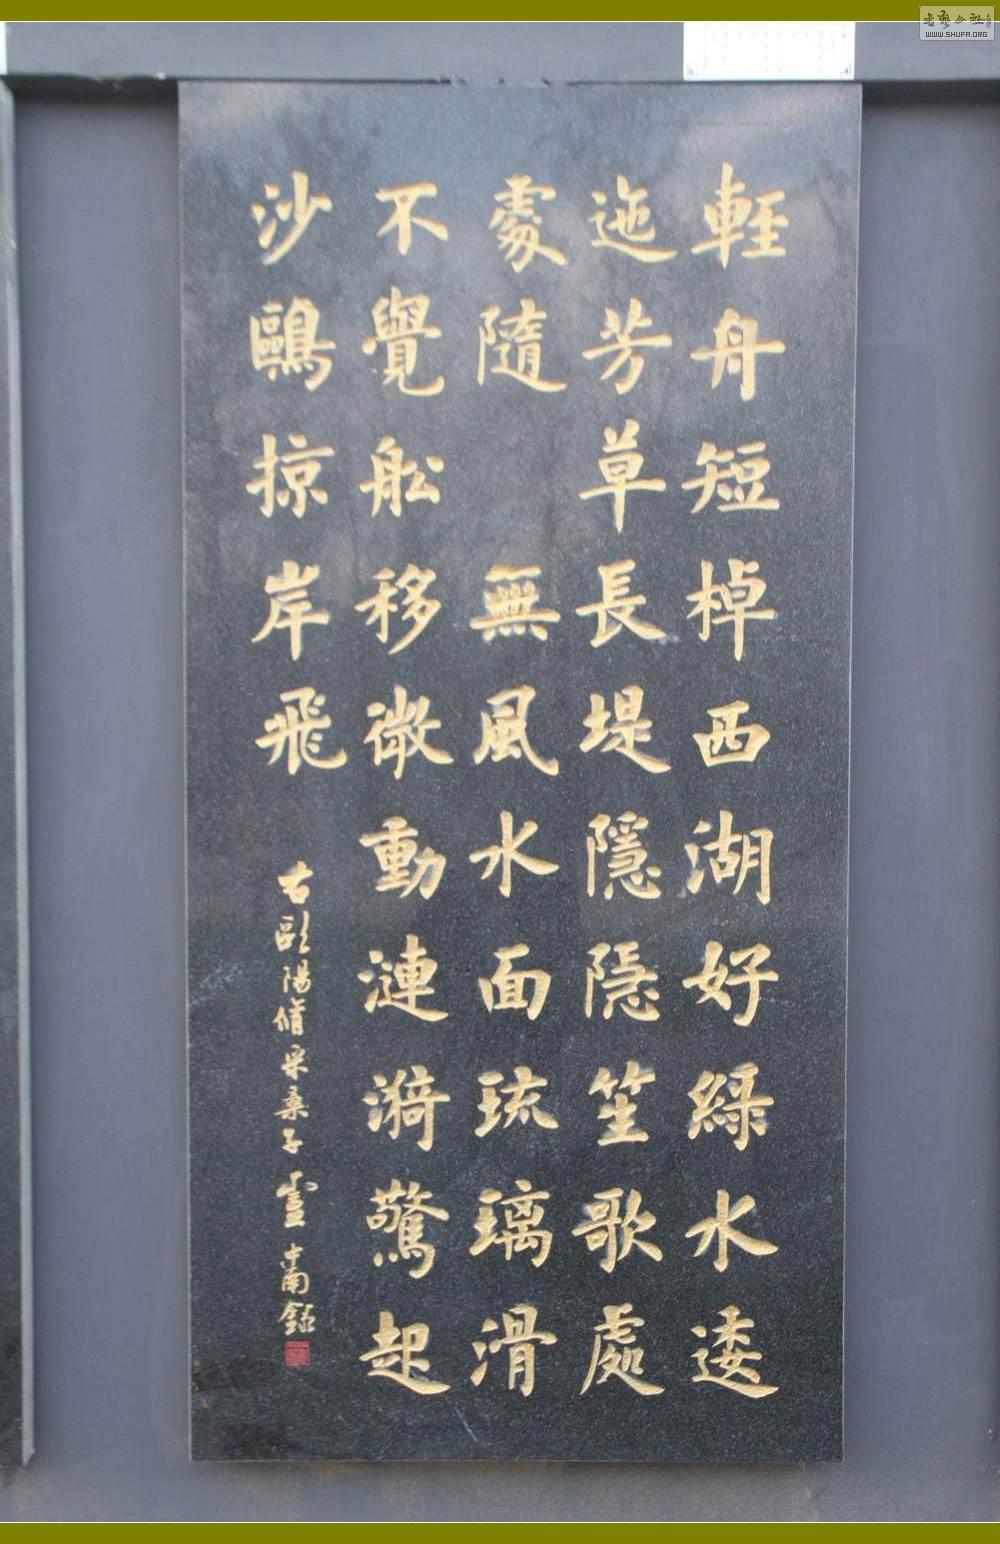 輕舟短棹西湖好綠水逶
迤芳草長堤隱隱笙歌處
處隨 無風水面琉璃滑
不覺船移微動漣漪驚起
沙鷗掠岸飛
右歐陽脩采桑子 盧中南錄
书艺公社
WWW.SHUFA.ORG